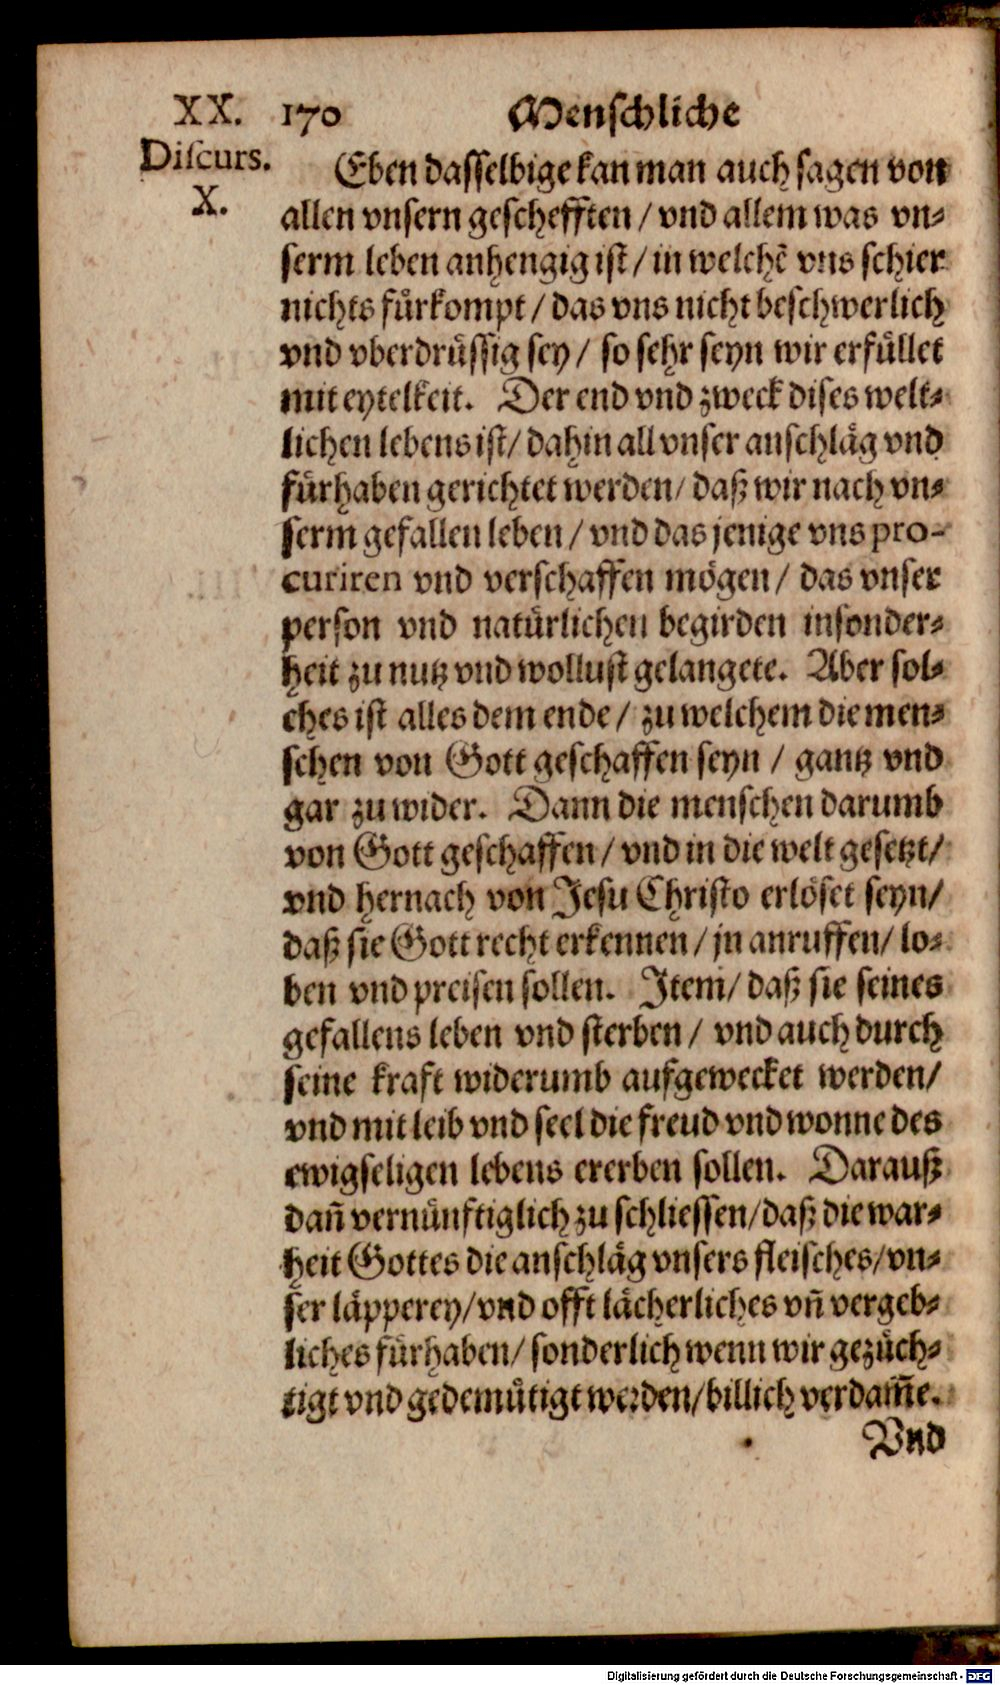 XX. 170 Menschliche
Discurs.
X.
Eben dasselbige kan man auch sagen von
allen vnsern geschefften / vnd allem was vn-
serm leben anhengig ist / in welchẽ vns schier
nichts fürkompt / das vns nicht beschwerlich
vnd vberdrüssig sey / so sehr seyn wir erfüllet
mit eytelkeit. Der end vnd zweck dises welt-
lichen lebens ist / dahin all vnser anschläg vnd
fürhaben gerichtet werden / daß wir nach vn-
serm gefallen leben / vnd das jenige vns pro-
curiren vnd verschaffen mögen / das vnser
person vnd natürlichen begirden insonder-
heit zu nutz vnd wollust gelangete. Aber sol-
ches ist alles dem ende / zu welchem die men-
schen von Gott geschaffen seyn / gantz vnd
gar zu wider. Dann die menschen darumb
von Gott geschaffen / vnd in die welt gesetzt /
vnd hernach von Jesu Christo erlöset seyn /
daß sie Gott recht erkennen / jn anruffen / lo-
ben vnd preisen sollen. Item / daß sie seines
gefallens leben vnd sterben / vnd auch durch
seine kraft widerumb aufgewecket werden /
vnd mit leib vnd seel die freud vnd wonne des
ewigseligen lebens ererben sollen. Darauß
dañ vernünftiglich zu schliessen / daß die war-
heit Gottes die anschläg vnsers fleisches / vn-
ser läpperey / vnd offt lächerliches vñ vergeb-
liches fürhaben / sonderlich wenn wir gezüch-
tigt vnd gedemütigt werden / billich verdam̃e.
Vnd
Digitalisierung gefördert durch die Deutsche Forschungsgemeinschaft - DFG